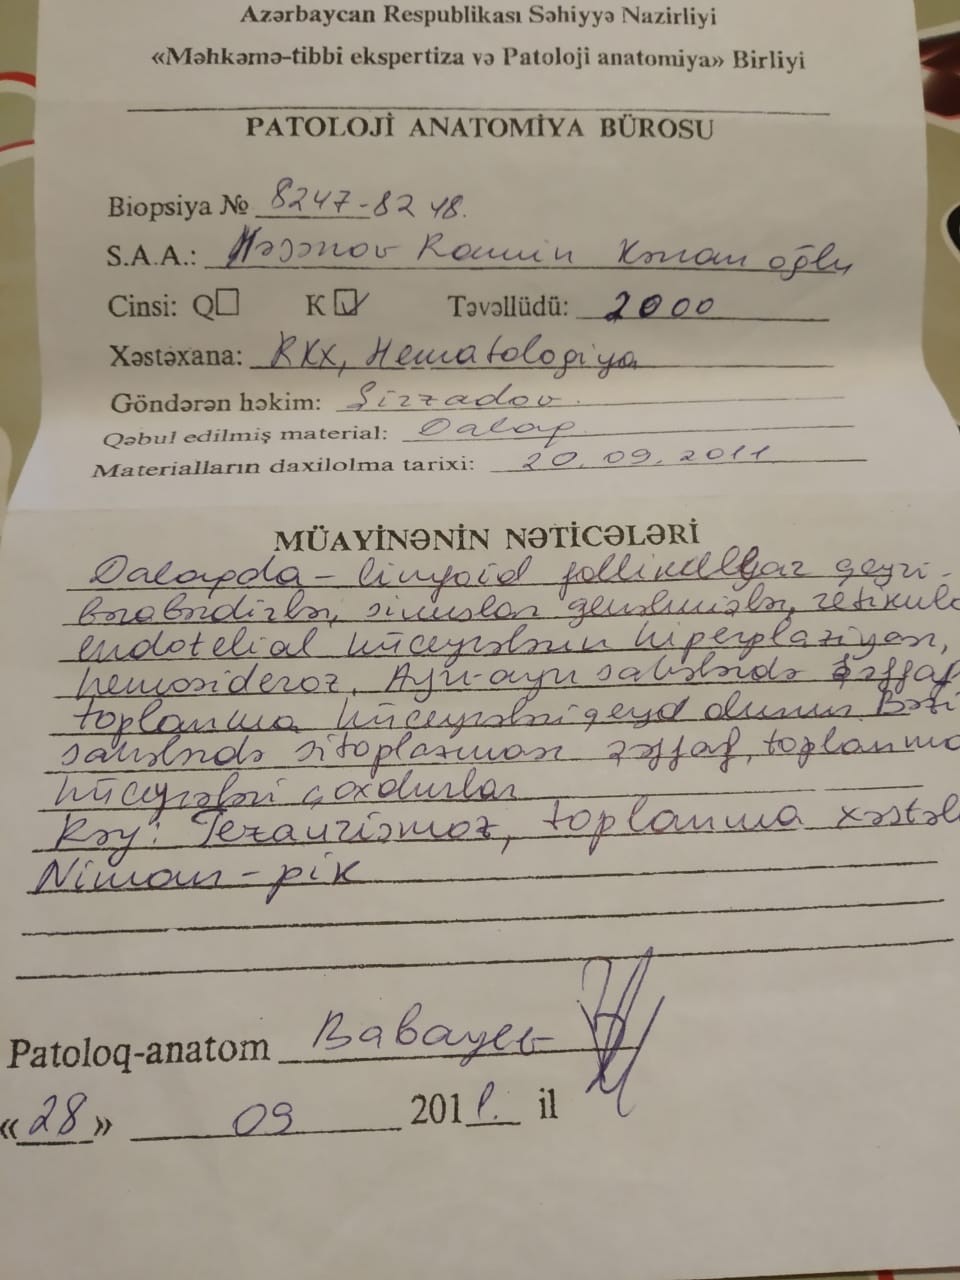 Azərbaycan Respublikası Səhiyyə Nazirliyi
«Məhkəmə-tibbi ekspertiza və Patoloji anatomiya» Birliyi
PATOLOJİ ANATOMİYA BÜROSU
Biopsiya № 8247-8248.
S.A.A.: Həsənov Ramin Kənan oğlu
Cinsi: Q K Təvəllüdü: 2000
Xəstəxana: RKX, Hematologiya
Göndərən həkim: Şirzadov.
Qəbul edilmiş material: Dalaq
Materialların daxilolma tarixi: 20.09.2011
MÜAYİNƏNİN NƏTİCƏLƏRİ
Dalaqda - limfoid follikullar qeyri-
bərabərdirlər, sinuslar genəlmişlər, retikulo
endotelial hüceyrələrin hiperplaziyası,
hemosideroz. Ayrı-ayrı sahələrdə şəffaf
toplanma hüceyrələri qeyd olunur. Bəzi
sahələrdə sitoplazması şəffaf, toplanma
hüceyrələri çoxdurlar
Rəy: Tezaurismoz, toplanma xəstəl
Niman-pik
Patoloq-anatom Babayev
«28» 09 2011. il